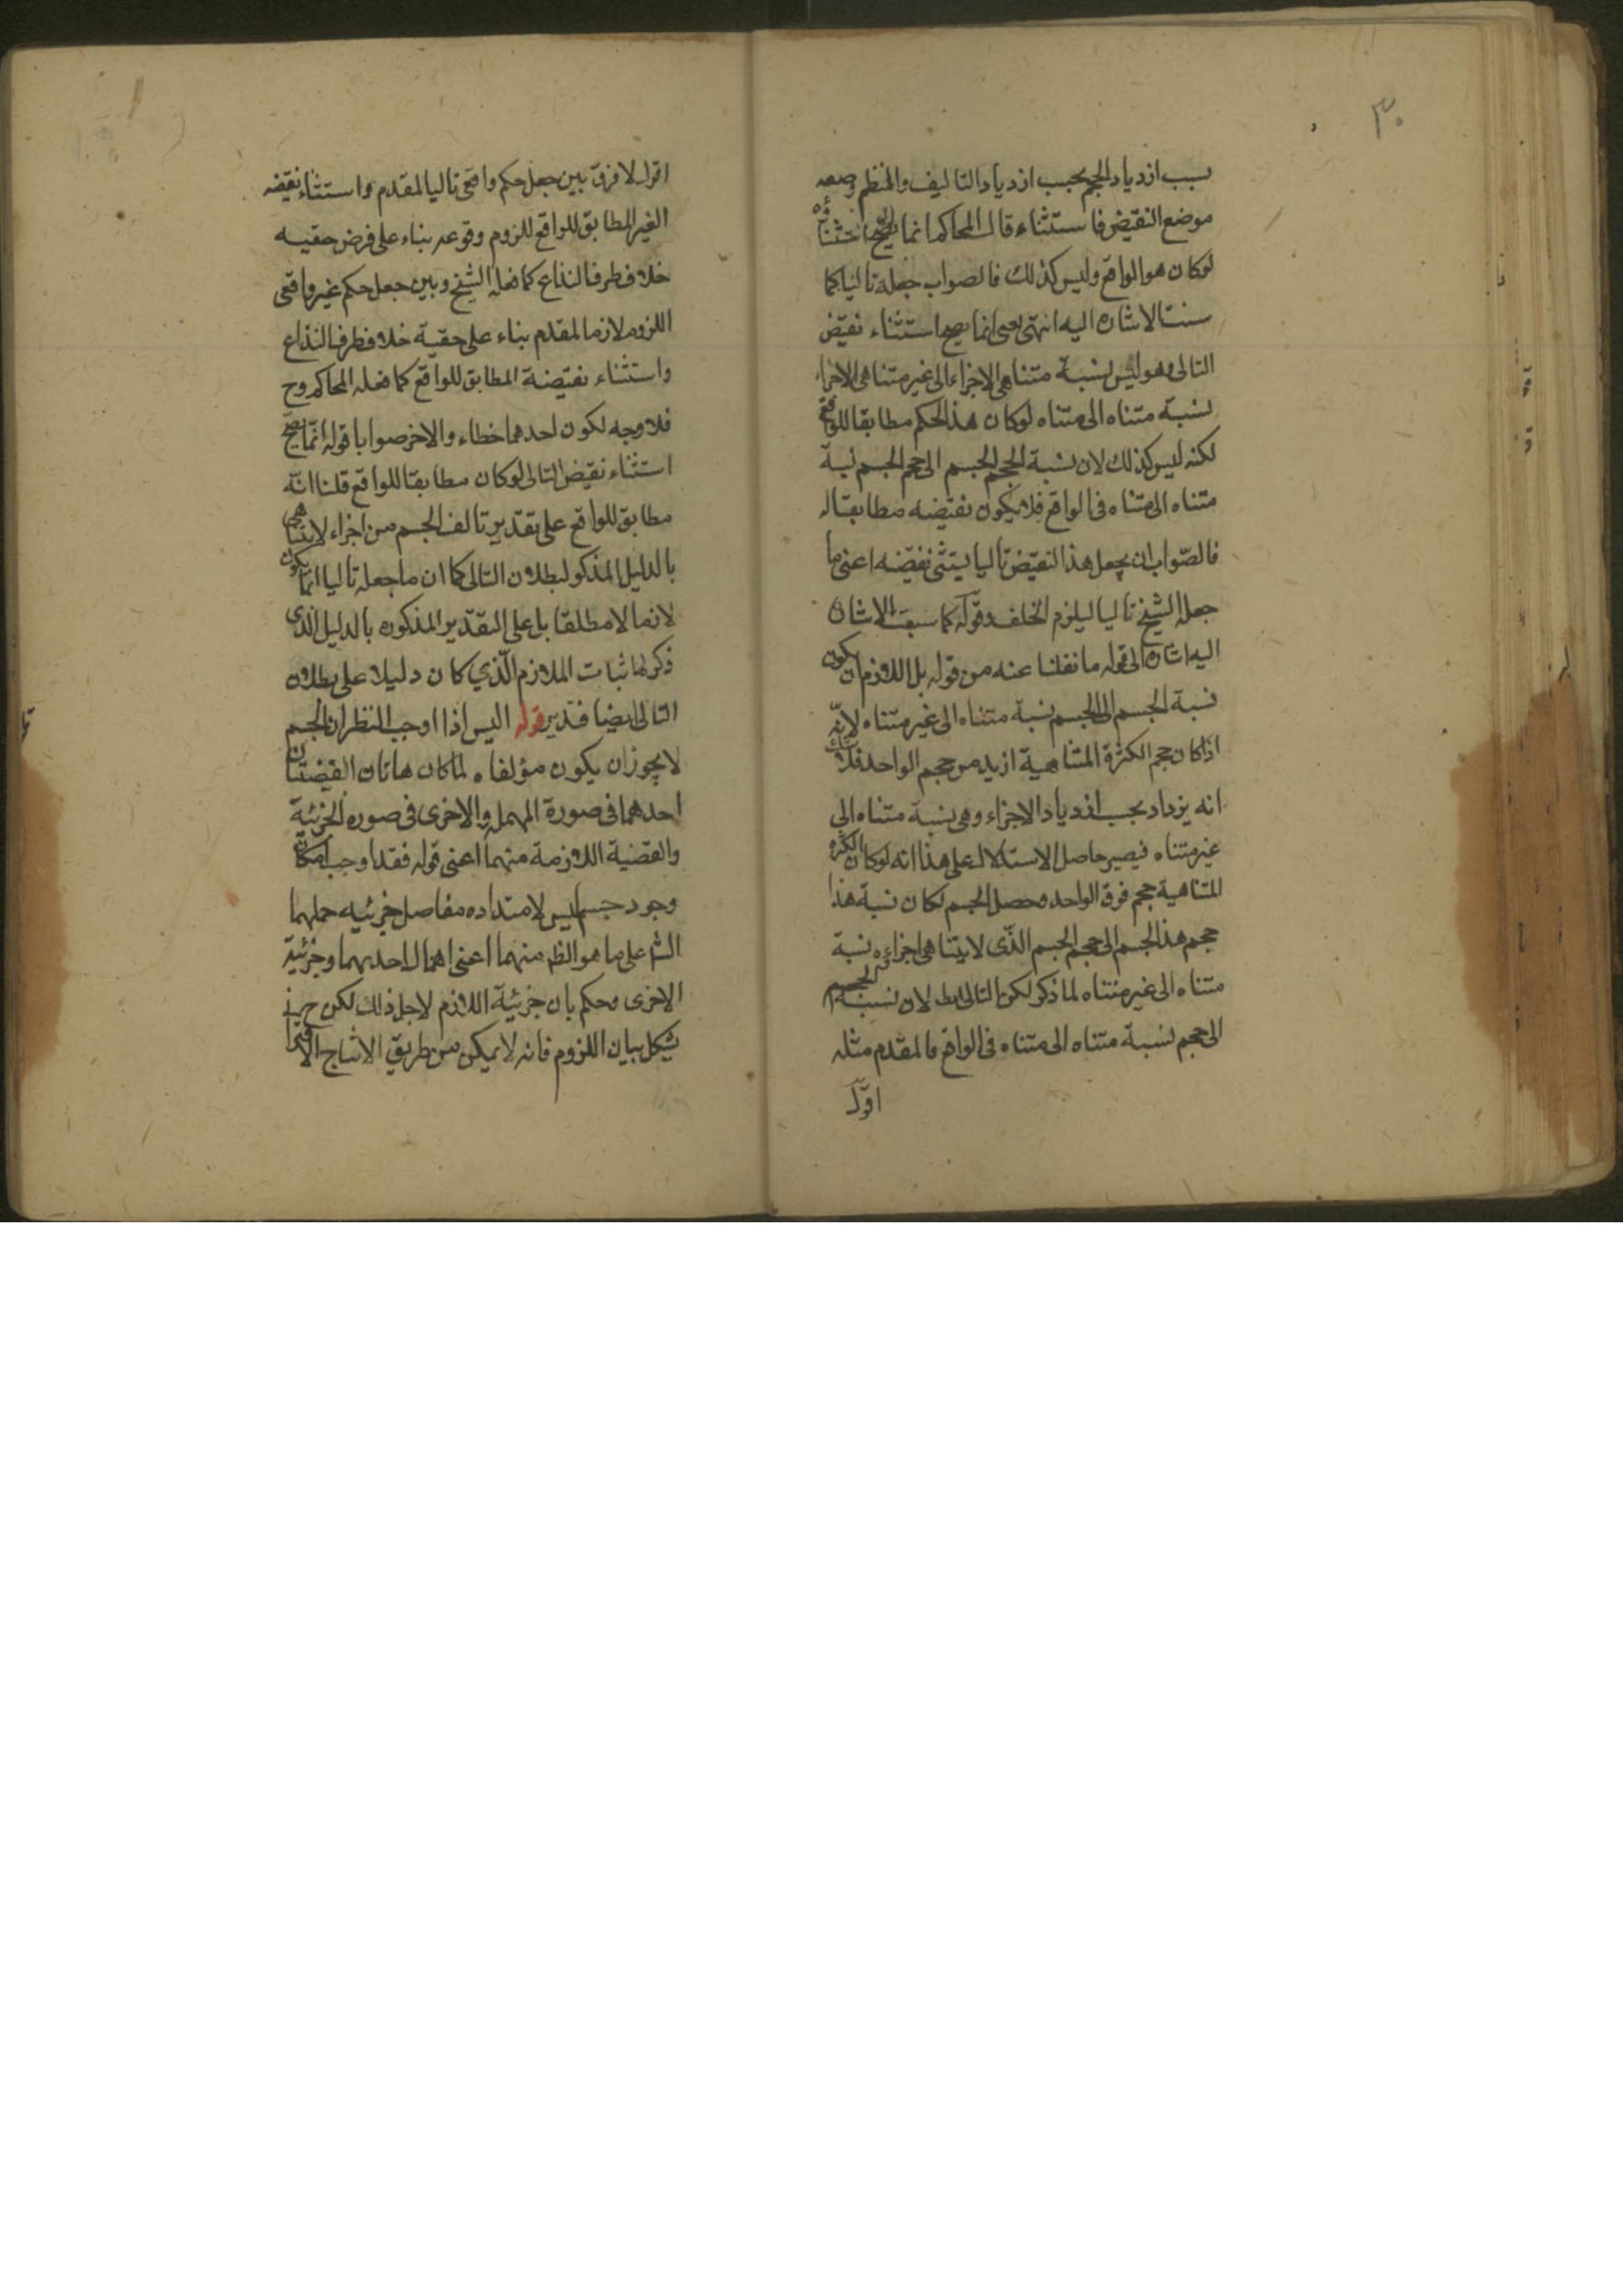 ٣٠
بسبب ازدياد الحجم بحسب ازدياد التاليف والنظم وضعه
موضع النقيض فاستثناء قال المحاكم انما يصح استثناؤه
لوكان هو الواقع وليس كذلك فالصواب جعله تاليا كما
سنت الاشاره اليه انتهى يعنى انما يصح استثناء نقيض
التالى وهو ليس نسبة متناهى الاجزاء الى غير متناهى الاجزاء
نسبة متناه الى متناه لوكان هذا الحكم مطابقا للواقع
لكنه ليس كذلك لان نسبة الحجم الجسم الى حجم الجسم نسبة
متناه الى متناه فى الواقع فلا يكون نقيضه مطابقا له
فالصّواب ان يجعل هذا النقيض تاليا ليتثنى نقيضه اعنى ما
جعله الشيخ تاليا ليلزم الخلف وقوله كما سبقت الاشارة
اليه اشارة الى قوله ما نقلنا عنه من قوله بل اللازم ان يكون
نسبة الجسم الى الجسم نسبة متناه الى غير متناه لانّه
اذا كان حجم الكثرة المتناهية ازيد من حجم الواحد فلا شك
انه يزداد بحسب ازدياد الاجزاء وهى نسبة متناه الى
غير متناه فيصير حاصل الاستدلال على هذا انه لوكان الكثرة
المتناهية حجم فوق الواحد وحصل الجسم لكان نسبة هذا
حجم هذا الجسم الى حجم الجسم الذّى لا يتناهى اجزاءه نسبة
متناه الى غير متناه لما ذكر لكن التالى بط لان نسبة الجسم
الى حجم نسبة متناه الى متناه فى الواقع فالمقدم مثله
اقول
اقول لا فرق بين جعل حكم واقعى تاليا لمقدم واستثناء نقيضه
الغير المطابق للواقع للزوم وقوعه بناء على فرض حقيه
خلاف طرف النزاع كما فعله الشيخ وبين جعل حكم غير واقعى
اللزوم لازما لمقدم بناء على حقية خلاف طرف النزاع
واستثناء نقيضة المطابق للواقع كما فعله المحاكم وح
فلا وجه لكون احدهما خطاء والاخر صوابا قوله انّما يصح
استثناء نقيض التالى لوكان مطابقا للواقع قلنا انّه
مطابق للواقع على تقدير تالف الجسم من اجزاء لا يتناهى
بالدليل المذكور لبطلان التالى كما ان ما جعله تاليا انّما يكون
لازما لا مطلقا بل على التقدير المذكور بالدليل الذى
ذكر لاثبات الملازم الّذي كان دليلا على بطلان
التالى ايضا فتدبر قوله اليس اذا اوجب النظر ان الجسم
لا يجوز ان يكون مؤلفا ه لما كان هاتان القضيتان
احدهما فى صورة المهملة والاخرى فى صوره الجزئية
والقضية اللازمة منهما اعنى قوله فقد اوجب امكان
وجود جسم ليس لامتداده مفاصل جزئيه حملهما
الشر على ما هو الظ منهما اعنى اهمال احديهما وجزئية
الاخرى وحكم بان جزئية اللازم لاجل ذلك لكن ح
يشكل بيان اللزوم فانه لا يمكن من طريق الانتاج